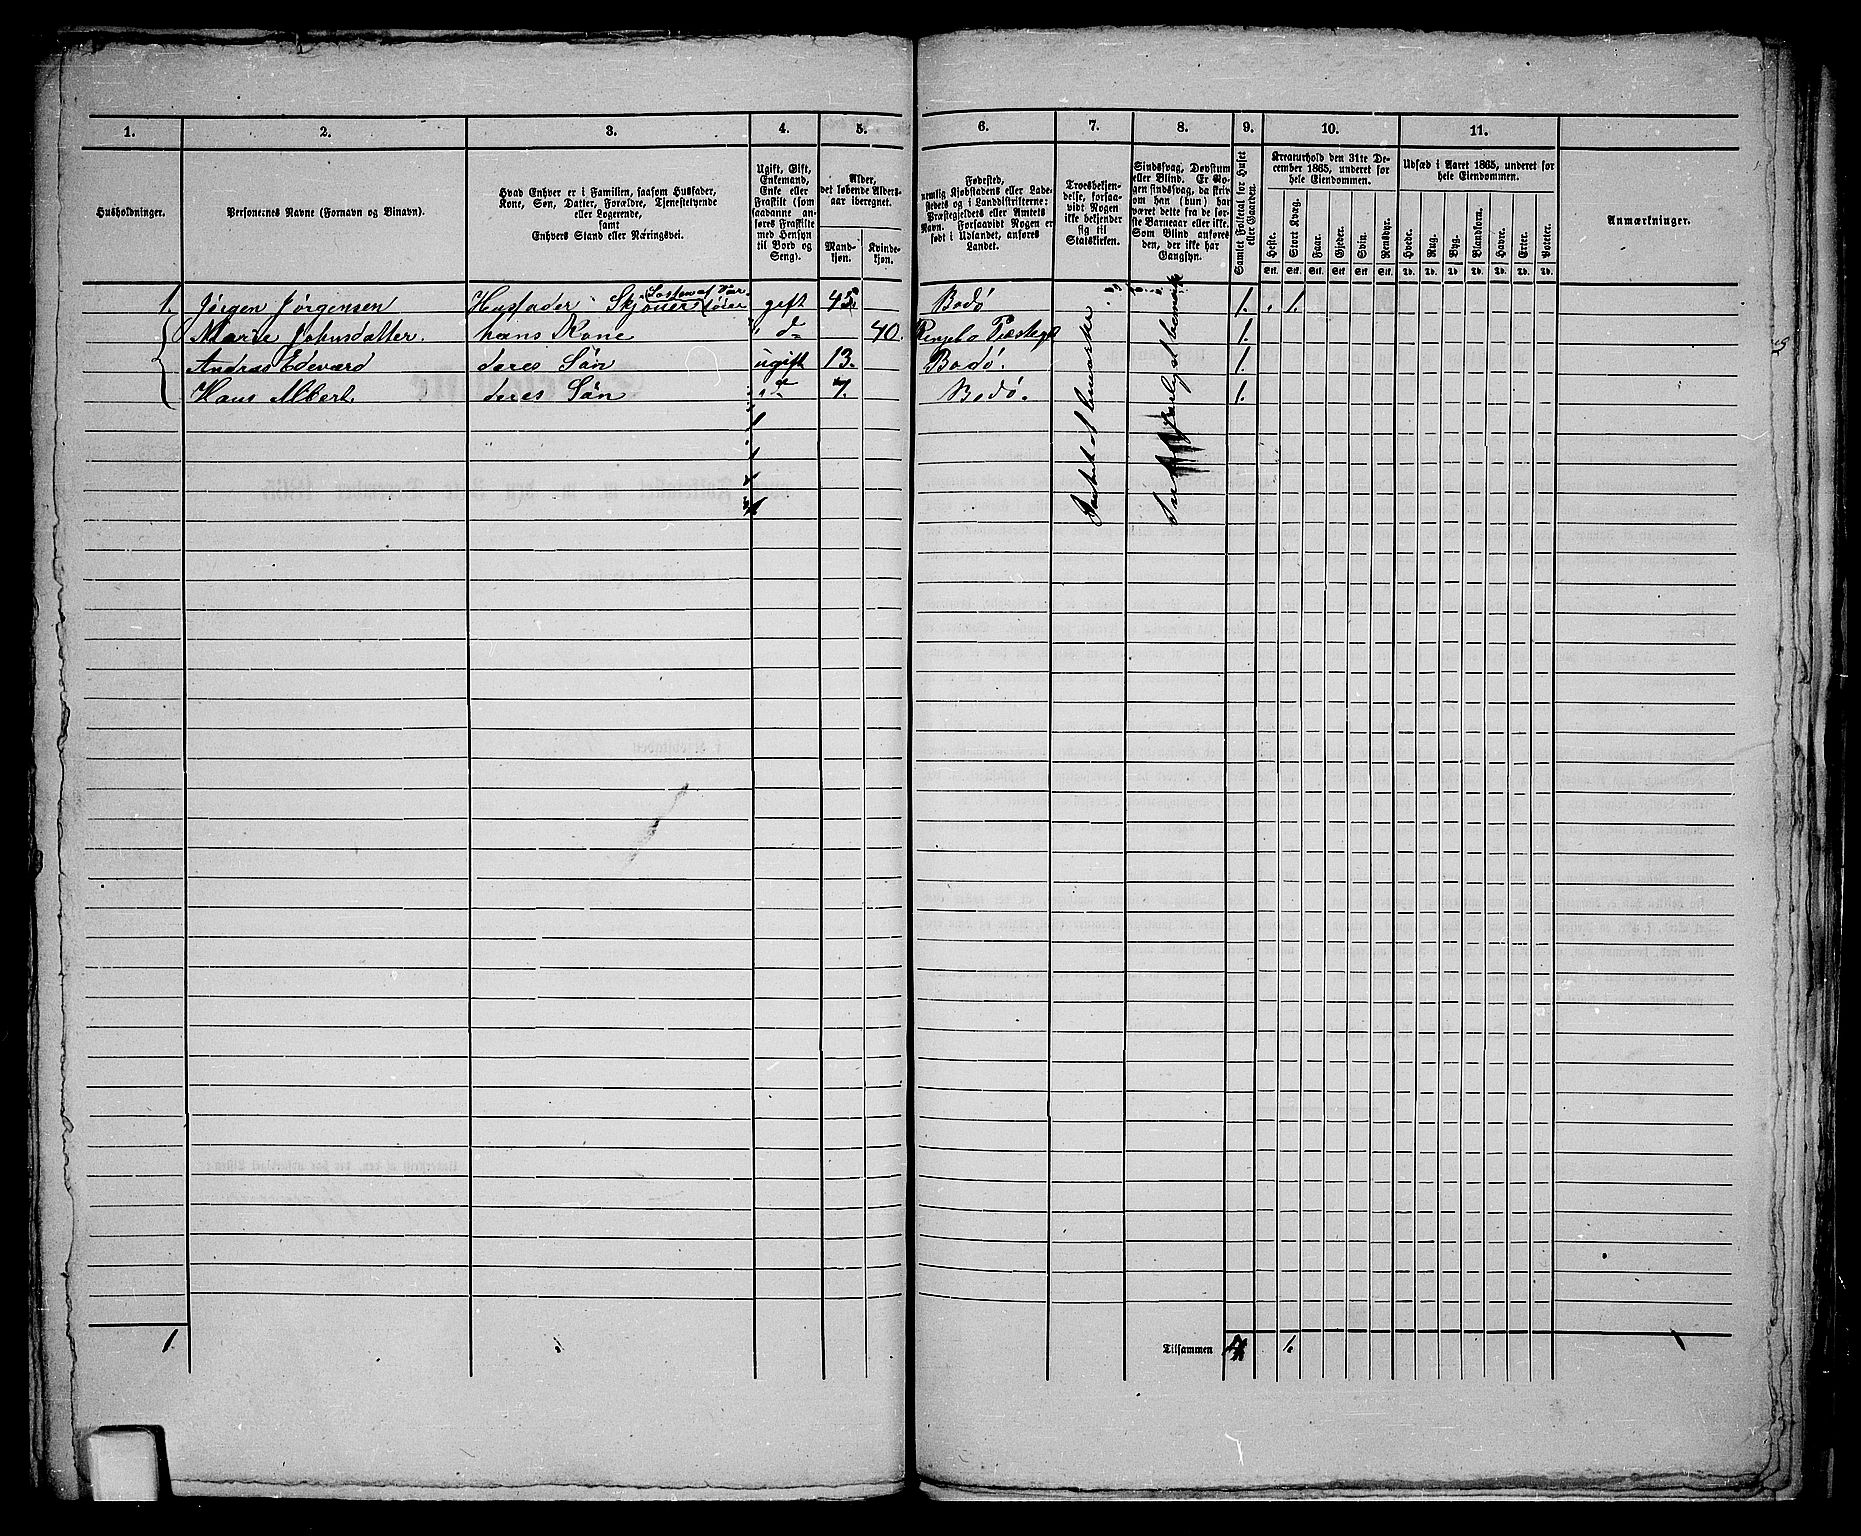 1. 2. 3. 4. 5. 6. 7. 8. 9. 10. 11.
Husholdninger.
Personernes Navne (Fornavn og Binavn).
Hvad Enhver er i Familien, saasom Husfader,
Kone, Søn, Datter, Forældre, Tjenestetyende
eller Logerende,
samt
Enhvers Stand eller Næringsvei.
Ugift, Gift,
Enkemand,
Enke eller
Fraskilt (som
saadanne an-
føres Fraskilte
med Hensyn
til Bord og
Seng).
Alder,
det løbende Alders-
aar iberegnet.
Mand-
kjøn.
Kvinde-
kjøn.
Fødested,
nemlig Kjøbstadens eller Lade-
stedets og i Landdistrikterne:
Præstegjeldets eller Amtets
Navn. Forsaavidt Nogen er
født i Udlandet, anføres
Landet.
Troesbekjen-
delse, forsaa-
vidt Nogen
ikke bekjender
sig til
Statskirken.
Sindssvag, Døvstum
eller Blind. Er No-
gen sindssvag, da skriv
om han (hun) har
været dette fra de før-
ste Barneaar eller ikke.
Som Blind anføres
den, der ikke har
Gangsyn.
Samlet Folketal for Huset
eller Gaarden.
Kreaturhold den 31te De-
cember 1865, underet for
hele Eiendommen.
Heste. Stort Kvæg. Faar. Gjeder. Svin. Rensdyr.
Stk. Stk. Stk. Stk. Stk. Stk.
Udsæd i Aaret 1865, underet for
hele Eiendommen.
Hvede. Rug. Byg. Blandkorn. Havre. Erter. Poteter.
Td. Td. Td. Td. Td. Td. Td.
Anmærkninger.
1. Jørgen Jørgensen Husfader Skjøner gift 45. Bodø 1. 1.
Marie Johnsdatter. hans Kone d 40. 1.
Andreas Edevard deres Søn ugift 13. Bodø. 1.
Hans Albert. deres Søn 7. Bodø. 1.
1. Tilsammen 1.